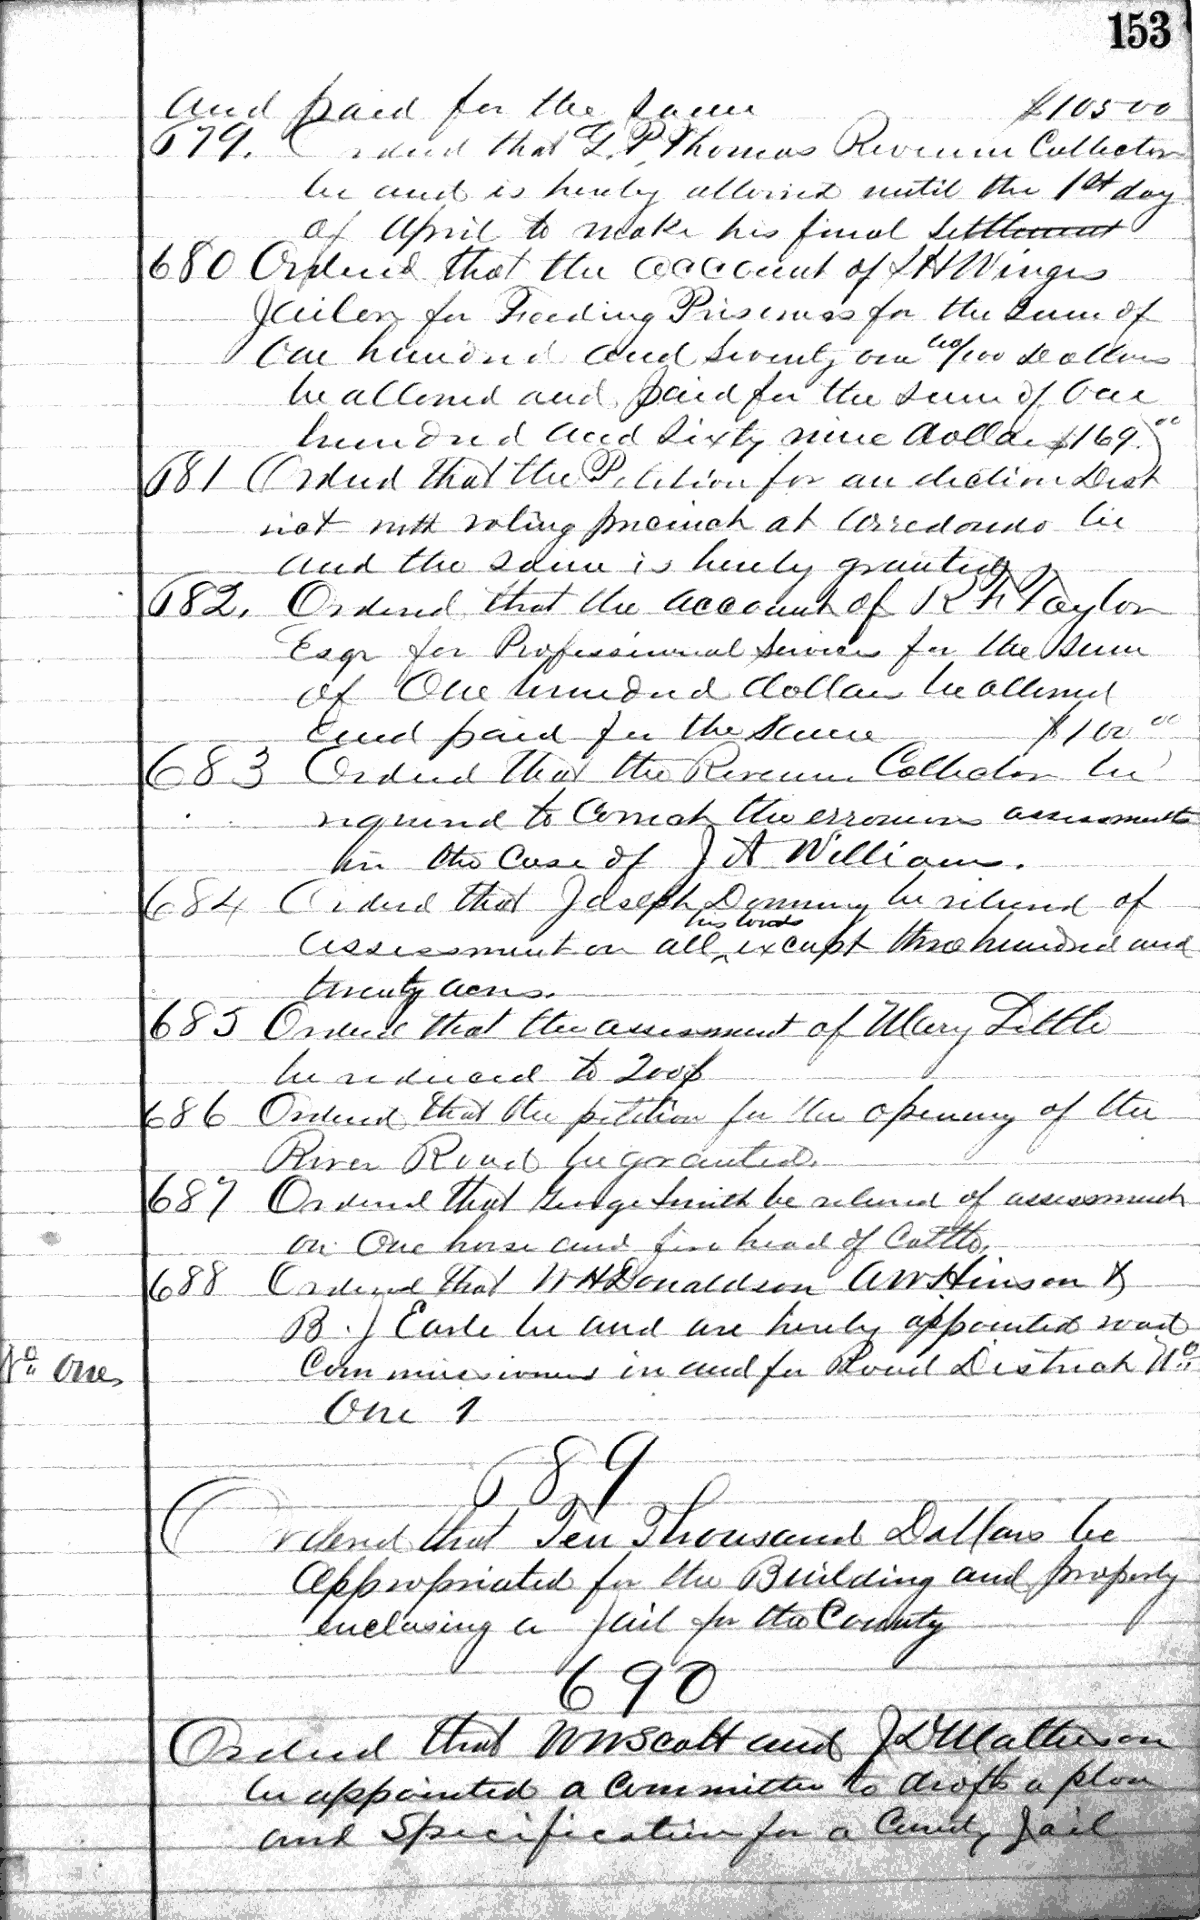 153
and paid for the same $105 00
679. Ordered that G. P. Thomas Revenue Collector
be and is hereby allowed until the 1st day
of April to make his final Settlement
680 Ordered that the acccount of S H Winges
Jailor for Feeding Prisoners for the Sum of
One hundred and Seventy one 40/100 Dollars
be allowed and paid for the sum of One
hundred and Sixty nine dollars $169.00
681 Ordered that the Petition for an election Dist
rict with voting precinct at Arredondo be
and the same is hereby granted
682. Ordered that the account of R F Taylor
Esqr for Professional Services for the Sum
of One hundred dollars be allowed
and paid for the Same $100 00
683 Ordered that the Revenue Collector be
required to Correct the erroneous assessments
in the Case of J A Williams.
684 Ordered that Joseph be relieved of
his lands
assessment on all ^ except three hundred and
twenty acres.
685 Ordered that the assessment of Mary Little
be reduced to 200$
686 Ordered that the petition for the opening of the
River Road be granted.
687 Ordered that George Smith be relieved of assessment
on One horse and five head of Cattle.
688 Ordered that W H Donaldson A W Hinson &
B. J Earle be and are hereby appointed road
No one, Commissioners in and for Road District No
One 1
689
Ordered that Ten Thousand Dollars be
Appropriated for the Building and properly
enclosing a Jail for the County
690
Ordered that W W Scott and J D Matheson
be appointed a Committee to draft a plan
and Specification for a County Jail